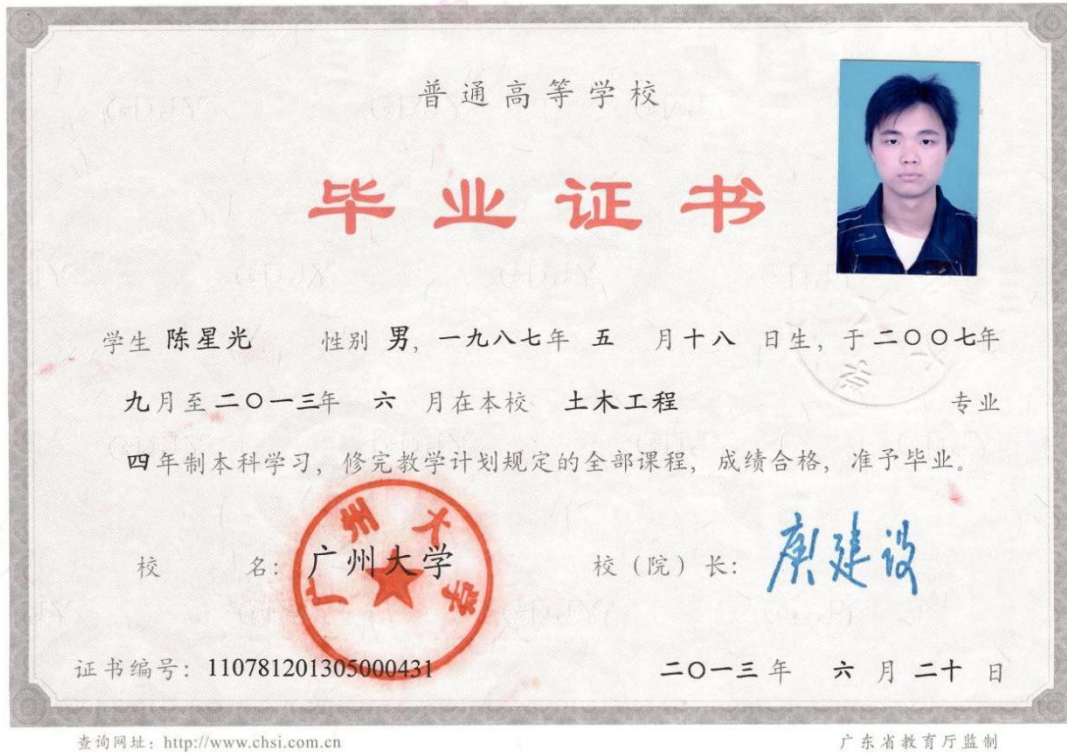 普通高等学校
毕业证书
学生 陈星光 性别 男，一九八七年 五 月十八 日生，于二〇〇七年
九月至二〇一三年 六 月在本校 土木工程 专业
四年制本科学习，修完教学计划规定的全部课程，成绩合格，准予毕业。
校 名：广州大学 校（院）长：庾建设
广州大学
证书编号：110781201305000431 二〇一三年 六 月二十 日
查询网址：http://www.chsi.com.cn 广东省教育厅监制